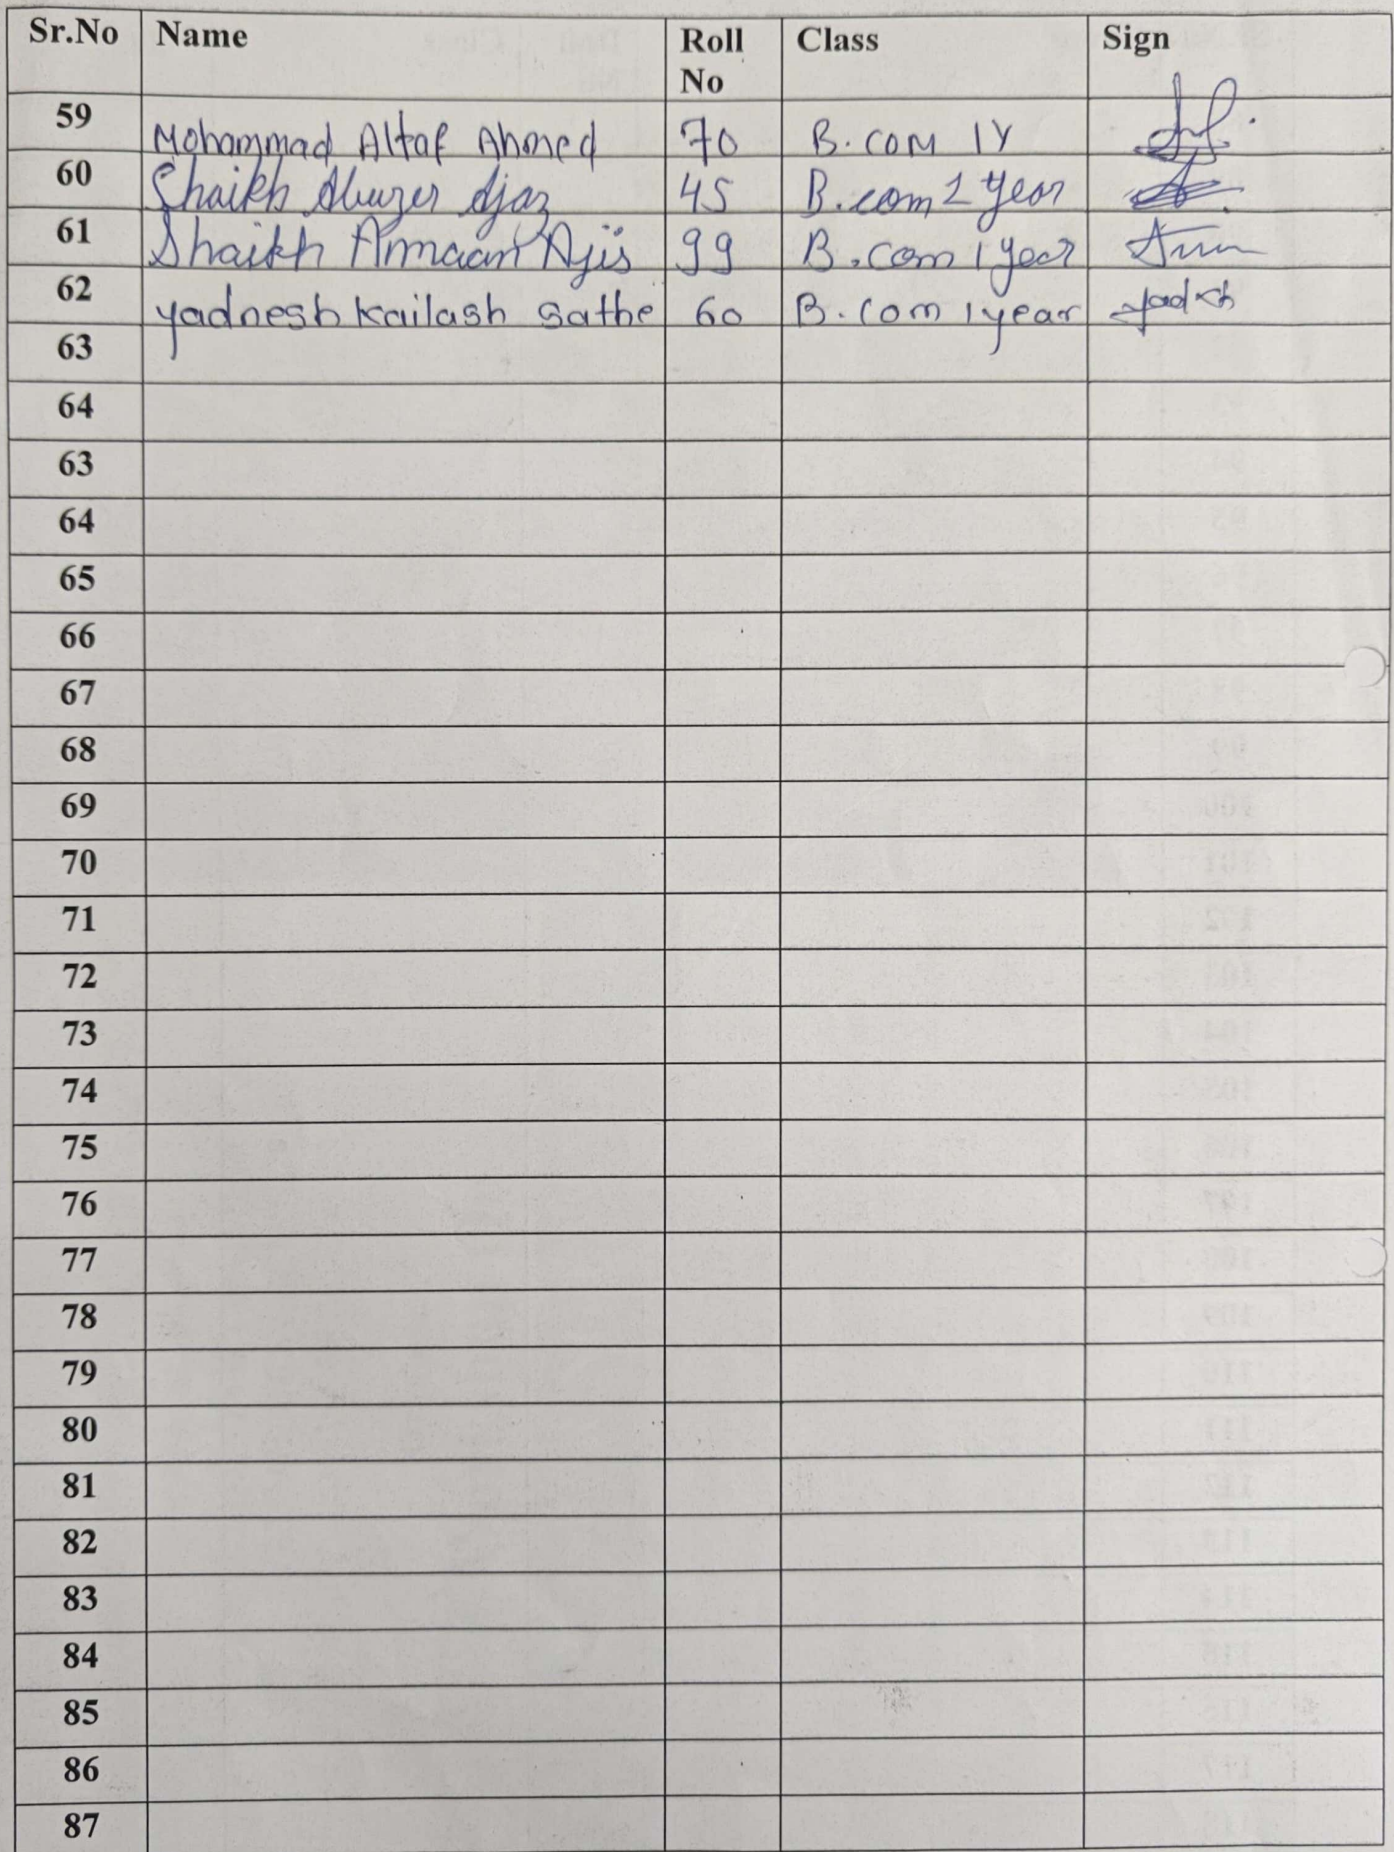 Sr.No Name Roll No Class Sign
59 Mohammad Altaf Ahmed 70 B.com 1Y
60 Shaikh Abuzer Ajaz 45 B.com 1 year
61 Shaikh Armaan Ajis 99 B.com 1 year
62 yadnesh kailash sathe 60 B.com 1 year
63
64
63
64
65
66
67
68
69
70
71
72
73
74
75
76
77
78
79
80
81
82
83
84
85
86
87